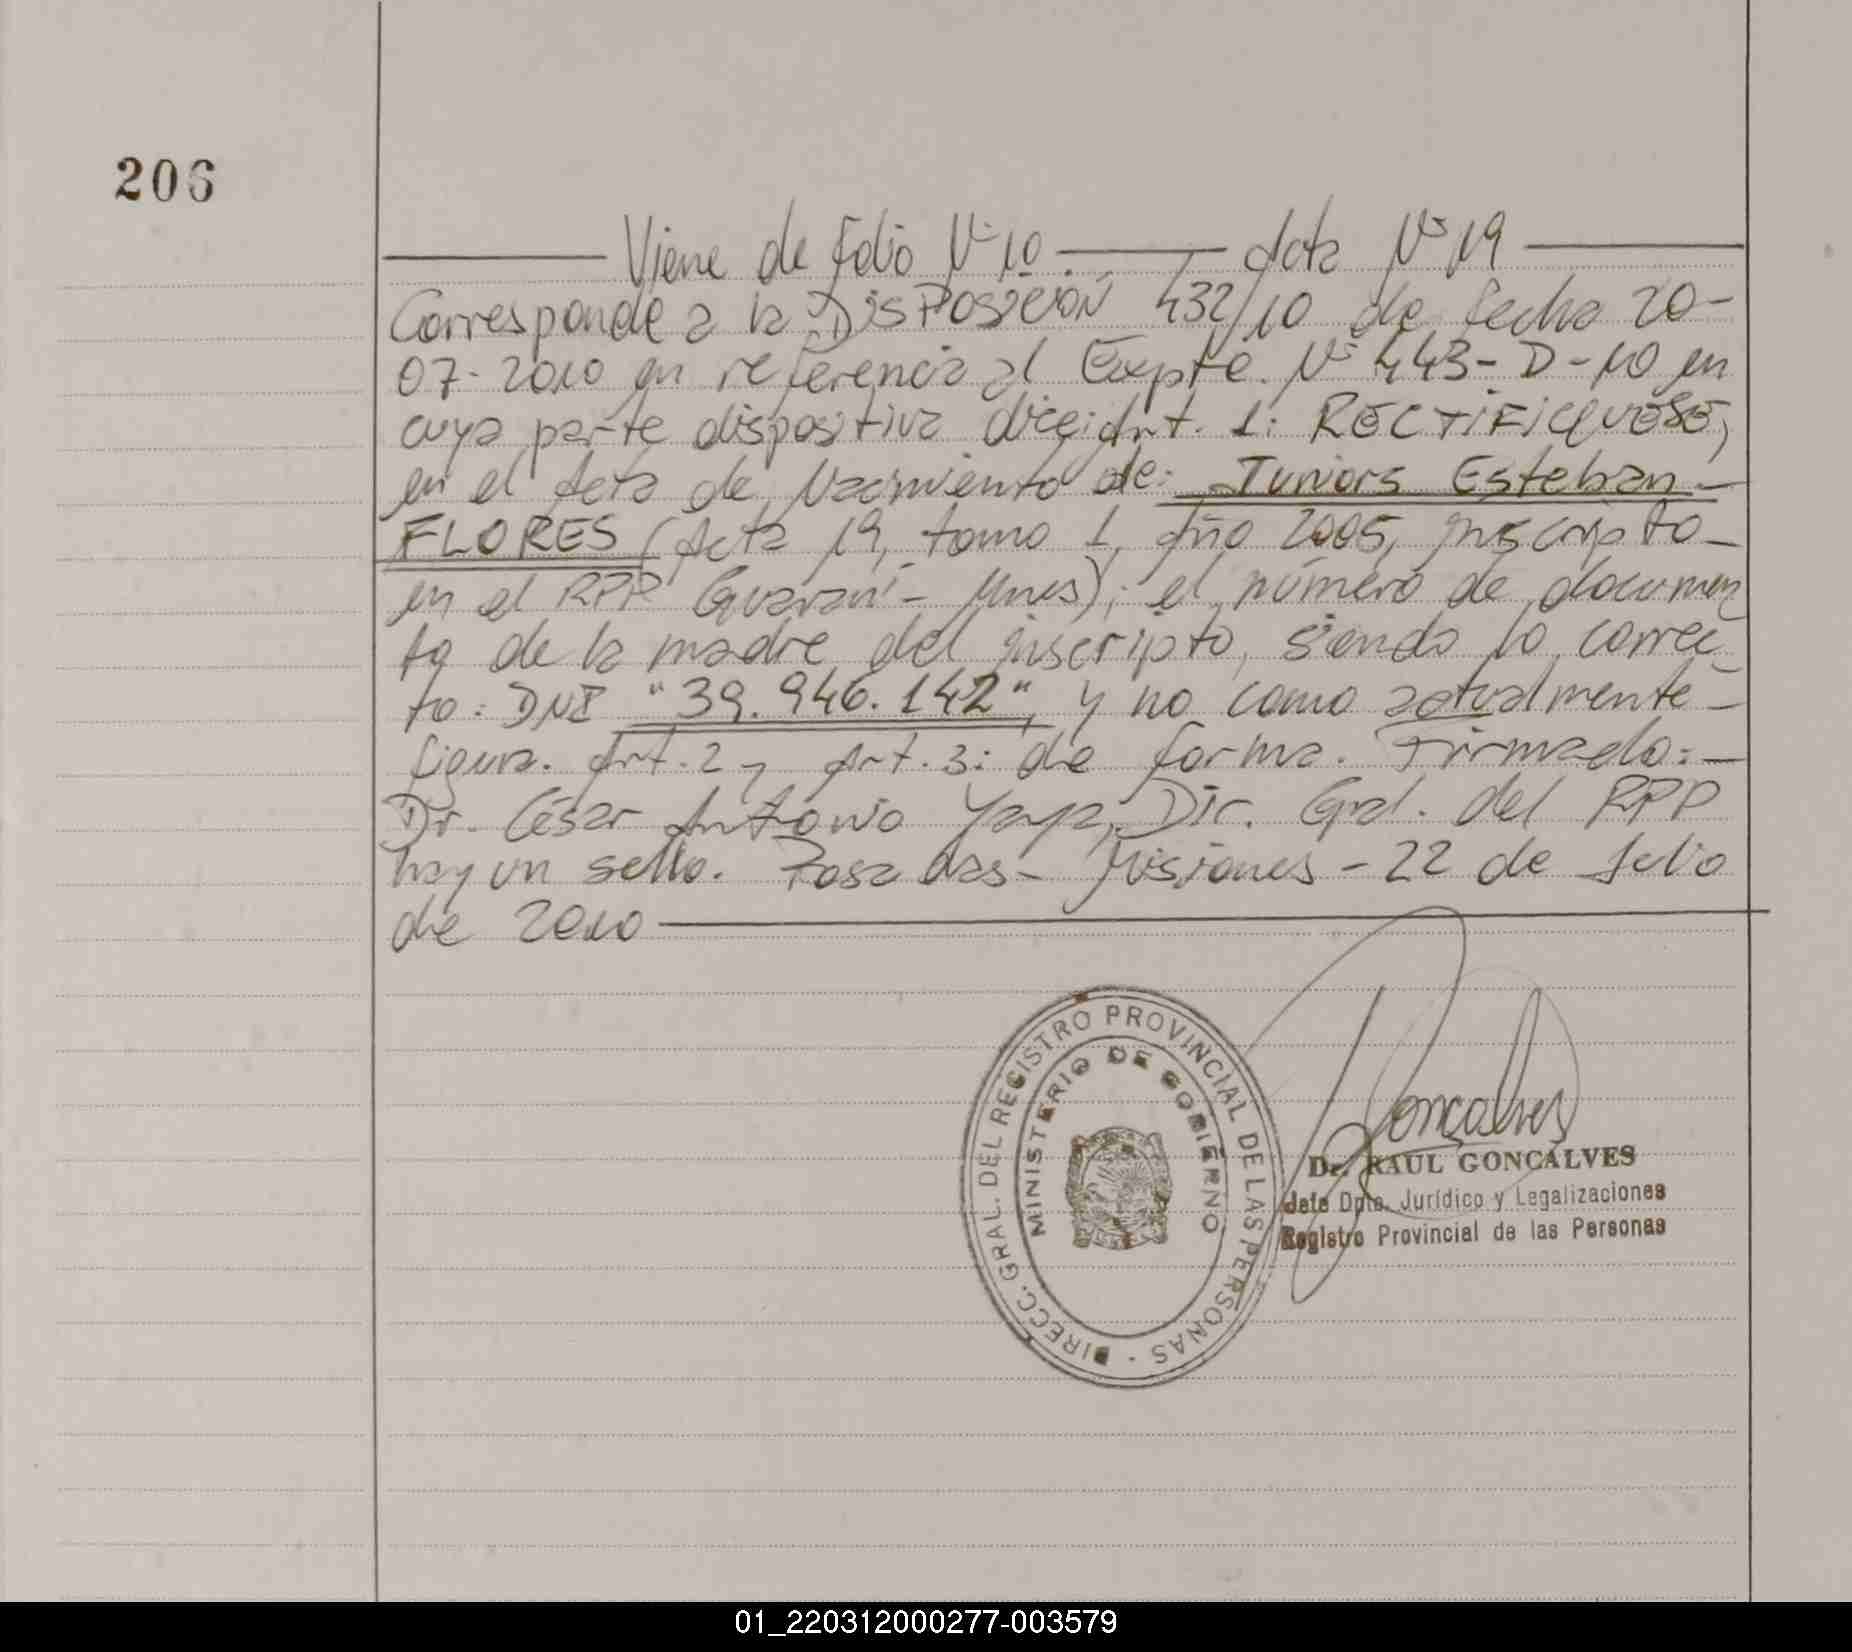 206
Viene de folio Nº 10. Acta Nº 19
Corresponde a la Disposición 432/10 de fecha 20-
07-2010 en referencia al Expte. Nº 443-D-10 en
cuya parte dispositiva dice: Art. 1: RECTIFIQUESE,
en el Acta de Nacimiento de: Juniors Esteban -
FLORES (Acta 19, tomo 1, Año 2005, inscripto -
en el RPP Guaraní - Mnes); el número de documen
to de la madre del inscripto, siendo lo correc
to: DNI "39.946.142", y no como actualmente -
figura. Art. 2 y Art. 3: de forma. Firmado: -
Dr. César Antonio Yaya, Dir. Gral. del RPP
hay un sello. Posadas - Misiones - 22 de Julio
de 2010
DIRECC. GRAL. DEL REGISTRO PROVINCIAL DE LAS PERSONAS -
MINISTERIO DE GOBIERNO
Gonçalves
Dr. RAUL GONCALVES
Jefe Dpto. Jurídico y Legalizaciones
Registro Provincial de las Personas
01_220312000277-003579